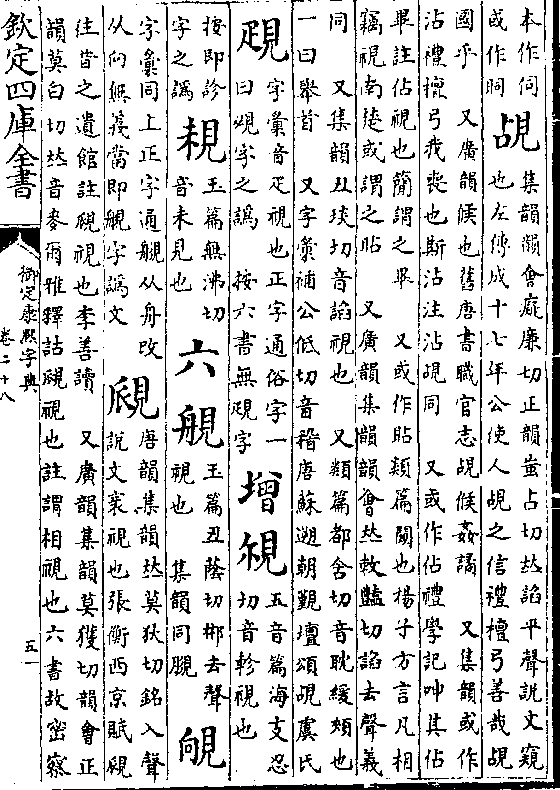 本作伺
或作䀩
覘
集韻韻會𢈪廉切正韻蚩占切𠀤諂平聲說文窺
也左傳成十七年公使人覘之信禮檀弓善哉覘
國乎 又廣韻候也舊唐書職官志覘候姦譎 又集韻或作
沾禮檀弓我喪也斯沾注沾覘同 又或作佔禮學記呻其佔
畢註佔視也簡謂之畢 又或作貼類篇闚也楊子方言凡相
竊視南楚或謂之貼 又廣韻集韻韻會𠀤敕豔切諂去聲義
同 又集韻丑琰切音諂視也 又類篇都含切音耽緩頰也
一曰舉首 又字彙補公低切音稽唐蘇遡朝覲壇頌覘虞氏
字彙音疋視也正字通俗字一
曰覑字之譌 按六書無字
增
五音篇海支忍
切音軫視也
按即診
字之譌
玉篇無沸切
音未見也
六
玉篇丑蔭切郴去聲
視也 集韻同覴
字彙同上正字通从舟改
从向無義當即字譌文
覛
唐韻集韻𠀤莫狄切銘入聲
說文衺視也張衡西京賦覛
往昔之遺館註覛視也李善讀 又廣韻集韻莫獲切韻會正
韻莫白切𠀤音麥爾雅釋詁覛視也註謂相視也六書故密察
欽定四庫全書
御定康熙字典
卷二十八
五一